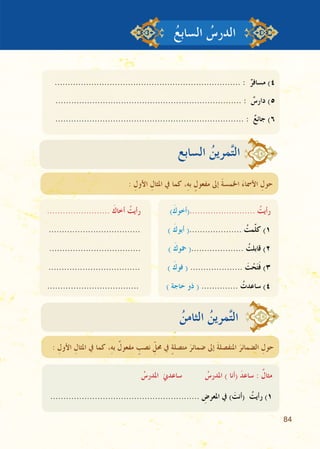 الدرسُ السابعُ
٤) مسافرٌ : ........................................................................
٥) دارسٌ : ........................................................................
٦) جائعٌ : ........................................................................
التَّمرينُ السابع
حول الأسماءَ الخمسةَ إلى مفعولٍ به، كما في المثالِ الأولِ :
رأيتُ .........................(أخوكَ) رأيتُ أخاكَ ........................
١) كلّمتُ....................( أبوك ) ...................................
٢) قابلتُ....................( حموكَ ) ...................................
٣) فَتَحْتَ .................... ( فوكَ ) ...................................
٤) ساعدتُ .............. ( ذو حاجة ) ...................................
التَّمرينُ الثامنُ
حولِ الضمائرَ المنفصلةَ إلى ضمائرَ متصلةٍ في محلِّ نصبٍ مفعولٌ به، كما في المثالِ الأولِ :
مثالٌ : ساعدَ (أنا ) المدرسُ ساعدنِيَ المدرسُ
١) رأيتُ (أنتَ) في المعرضِ .........................................................
84